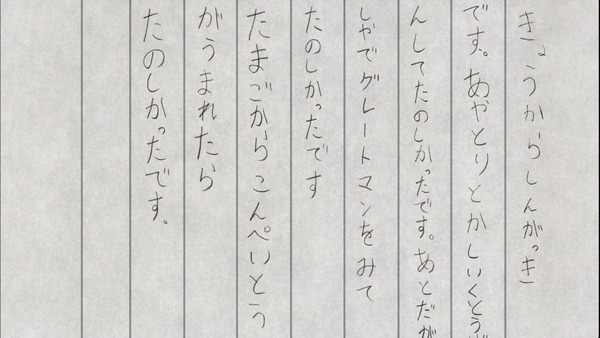 きょうからしんがっき
です。あやとりとかしいくとうば
んしてたのしかったです。あとだが
しやでグレートマンをみて
たのしかったです
たまごからこんぺいとう
がうまれたら
たのしかったです。